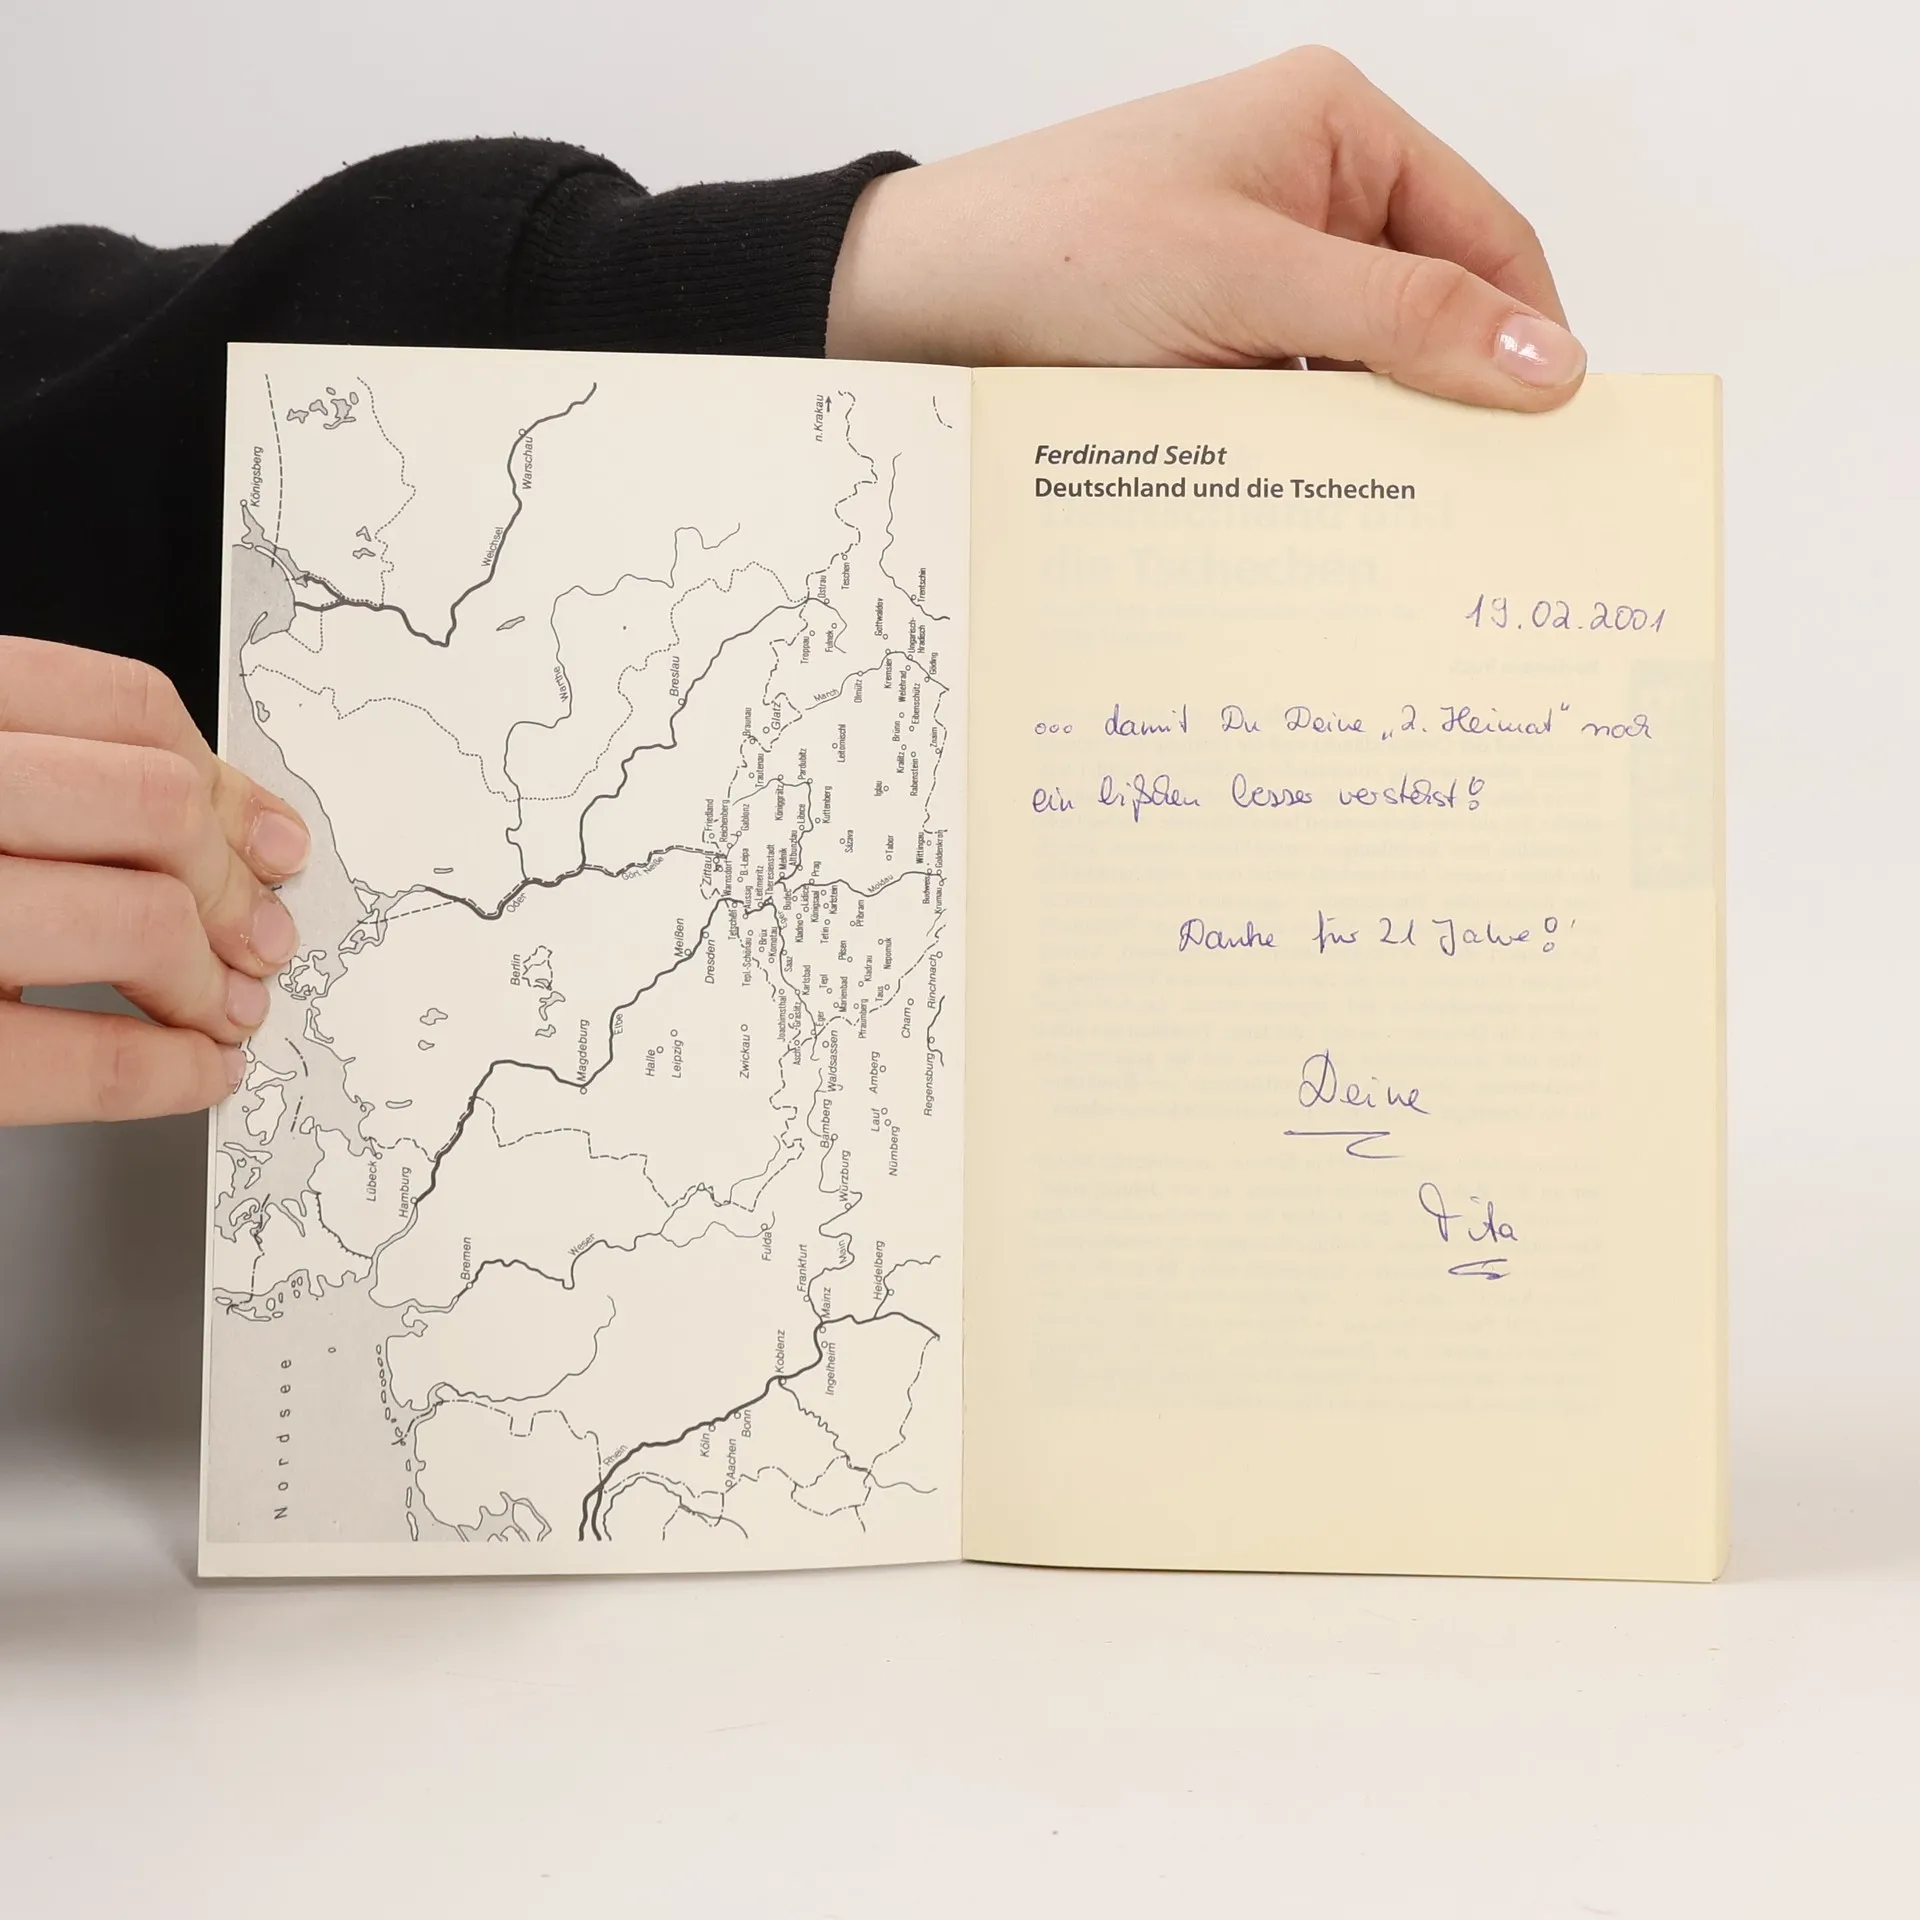 Ferdinand Seibt
Deutschland und die Tschechen
19.02.2001
... damit Du Deine „2. Heimat" noch
ein bißchen besser verstehst!
Danke für 21 Jahre!
Deine
Nordsee
Königsberg
Warschau
Weichsel
n.Krakau
Warthe
Breslau
Oder
Görl. Neiße
Berlin
Magdeburg
Elbe
Halle
Leipzig
Meißen
Dresden
Zwickau
Lübeck
Hamburg
Bremen
Weser
Fulda
Frankfurt
Main
Mainz
Ingelheim
Koblenz
Rhein
Köln
Bonn
Aachen
Heidelberg
Würzburg
Bamberg
Nürnberg
Lauf
Amberg
Waldsassen
Regensburg
Cham
Rinchnach
Zittau
Friedland
Reichenberg
Gablenz
Warnsdorf
B.-Leipa
Tetschen
Aussig
Leitmeritz
Theresienstadt
Melnik
Altbunzlau
Prag
Lidice
Königsaal
Karlstein
Kladno
Tetin
Brüx
Komotau
Saaz
Tepl.-Schönau
Joachimsthal
Karlsbad
Eger
Asch
Tepl
Marienbad
Pilsen
Pfraumberg
Kladrau
Taus
Nepomuk
Přibram
Moldau
Tabor
Sázava
Budweis
Krumau
Goldenkron
Wittingau
Kuttenberg
Libice
Königgrätz
Pardubitz
Trautenau
Braunau
Glatz
Leitomischl
Iglau
Znaim
Rabenstein
Kralitz
Brünn
Eibenschütz
Welehrad
Kremsier
Olmütz
March
Göding
Ungarisch-
Hradisch
Gottwaldov
Trentschin
Troppau
Fulnek
Ostrau
Teschen